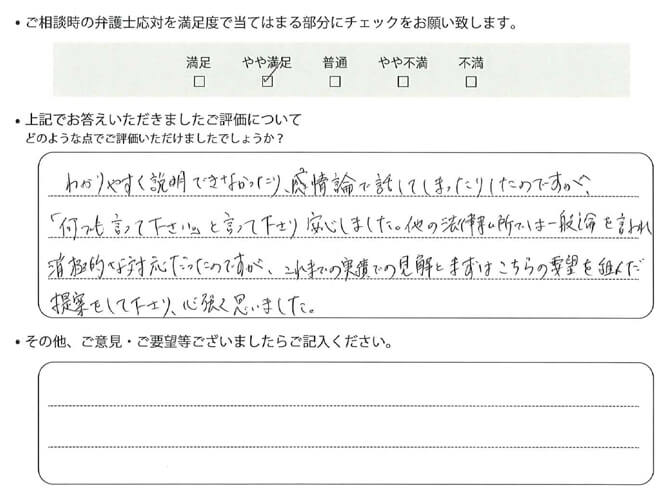 ・ご相談時の弁護士応対を満足度で当てはまる部分にチェックをお願い致します。
満足 やや満足 普通 やや不満 不満
□ ☑ □ □ □
・上記でお答えいただきましたご評価について
どのような点でご評価いただけましたでしょうか？
わかりやすく説明できなかったり、感情論で話してしまったりしたのですが、
「何でも言って下さい。」と言って下さり安心しました。他の法律事ム所では一般論を言われ
消極的な対応だったのですが、これまでの実績での見解とまずはこちらの要望を組んだ
提案をして下さり、心強く思いました。
・その他、ご意見・ご要望等ございましたらご記入ください。